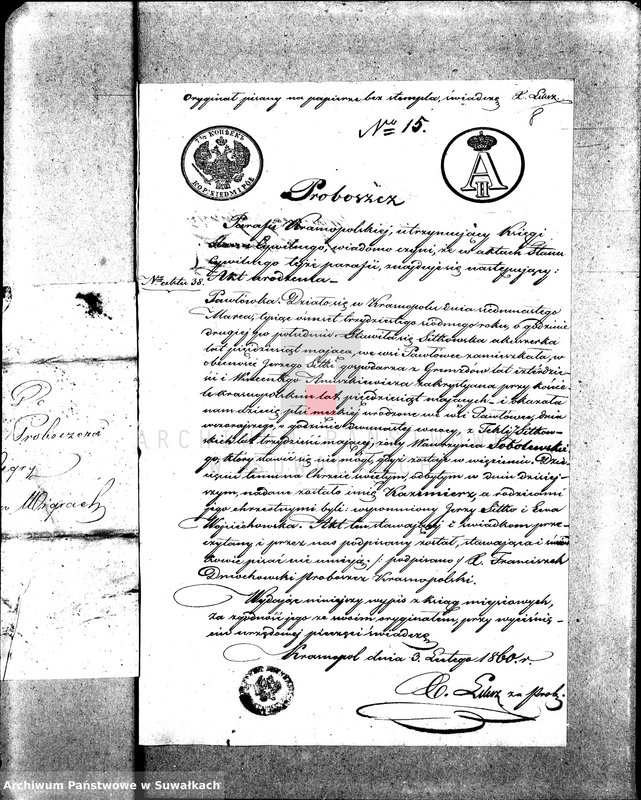 Oryginał pisany na papierze bez stempla, świadczę X. Lulisz
No 15.
7½ КОПѢЕКЪ
KOP: SIEDM I PÓŁ
A II
Proboszcz
Parafii Kramopolskiej, utrzymujący Księgi
Stanu Cywilnego, wiadomo czyni, że w aktach Stanu
Cywilnego tejże parafii, znajduje się następujący:
Akt urodzenia
38.
Pawłówka. Działo się w Kramopolu dnia siedmnastego
Marca, tysiąc ośmset trzydziestego siódmego roku, o godzinie
drugiej po południu. Stawiła się Sitkowska akuszerka
lat pięćdziesiąt mająca, we wsi Pawłowce zamieszkała, w
obecności Jerzego Sitki gospodarza z lat czterdzie-
ści i Wincentego zakrystyana przy koście-
le kramopolskim lat pięćdziesiąt mających i okazała
nam dziecię płci męzkiej urodzone we wsi Pawłowce, dnia
wczorajszego o godzinie dwunastej w nocy, z Tekli Sitkow-
skich lat trzydzieści mającej, żony Wawrzyńca Sobolewskie-
go, który stawić się nie mógł, gdyż zostaje w więzieniu. Dzie-
cięciu temu na Chrzcie świętym, odbytym w dniu dzisiej-
szym, nadane zostało imię Kazimierz, a rodzicami
jego chrzestnymi byli: wspomniony Jerzy Sitko i Ewa
Wojciechowska. Akt ten stawającej i świadkom prze-
czytany i przez nas podpisany został, stawająca i świad-
kowie pisać nie umieją. /: podpisano :/ X. Franciszek
Dmochowski Proboszcz Kramopolski.
Wydając niniejszy wypis z ksiąg miejscowych,
za zgodność jego ze swoim oryginałem, przy wyciśnię-
ciu urzędowej pieczęci świadczę
Kramopol dnia 3. Lutego 1860. r.
X. Lulisz za Prob.
Do
Proboszcza
Wigrach
ARCHIWUM PAŃSTWOWE
W SUWAŁKACH
Archiwum Państwowe w Suwałkach